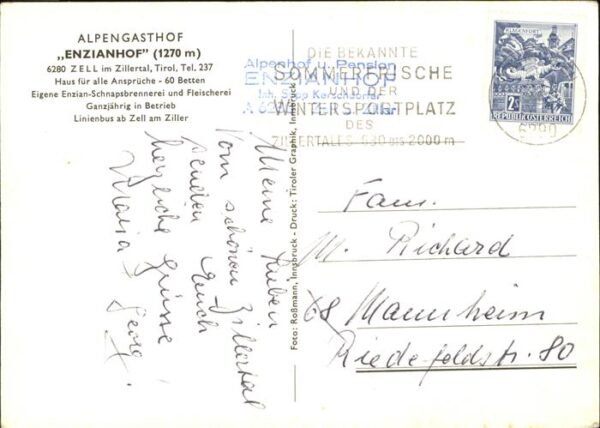 ALPENGASTHOF
„ENZIANHOF" (1270 m)
6280 ZELL im Zillertal, Tirol, Tel. 237
Haus für alle Ansprüche - 60 Betten
Eigene Enzian-Schnapsbrennerei und Fleischerei
Ganzjährig in Betrieb
Linienbus ab Zell am Ziller
Alpenhof u. Pension
ENZIANHOF
DIE BEKANNTE
SOMMERFRISCHE
UND DER
WINTERSPORTPLATZ
DES
ZILLERTALES 630 bis 2000 m
KLAGENFURT
2S
REPUBLIK ÖSTERREICH
6280
Meine Lieben
Vom schönen Zillertal
senden Euch
herzliche Grüsse
Maria
Foto: Roßmann, Innsbruck - Druck: Tiroler Graphik, Innsbruck
Fam.
M. Richard
68 Mannheim
Riedfeldstr. 80